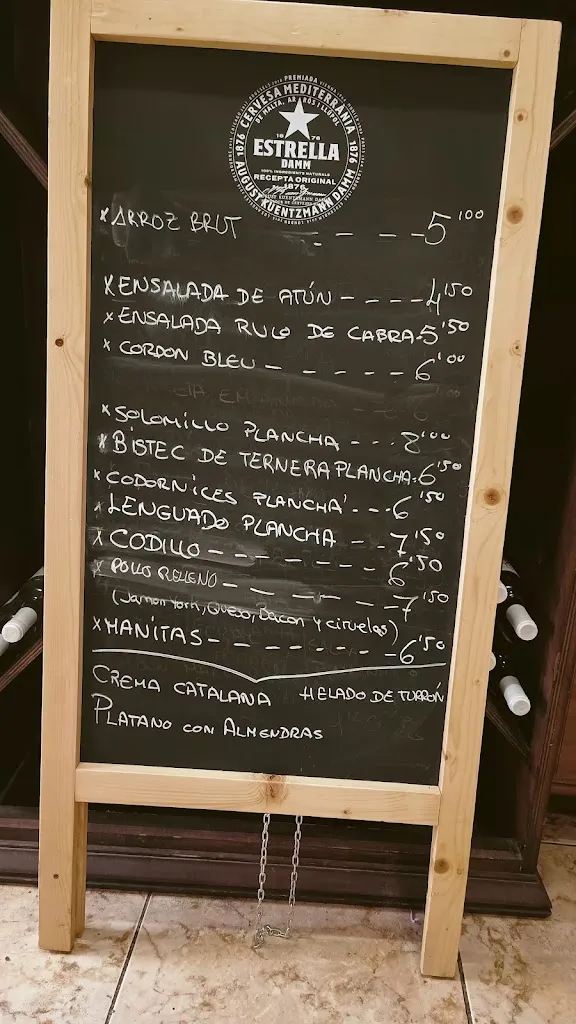 PREMIADA
CERVESA MEDITERRÀNIA
DE MALTA, ARRÒS I LLÚPOL
1876 1876
1876
ESTRELLA
DAMM
100% INGREDIENTS NATURALS
RECEPTA ORIGINAL
1876
AUGUST KUENTZMANN DAMM
* ARROZ BRUT - - - - 5'00
* ENSALADA DE ATÚN - - - - 4'50
* ENSALADA RULO DE CABRA - 5'50
* CORDON BLEU - - - - - 6'00
* SOLOMILLO PLANCHA - - - 8'00
* BISTEC DE TERNERA PLANCHA - 6'50
* CODORNICES PLANCHA - - - 6'50
* LENGUADO PLANCHA - - 7'50
* CODILLO - - - - - - - 6'50
* POLLO RELLENO - - - - - - - 7'50
(Jamon York, Queso, Bacon y ciruelas)
* MANITAS - - - - - - - - 6'50
CREMA CATALANA HELADO DE TURRÓN
PLATANO CON ALMENDRAS